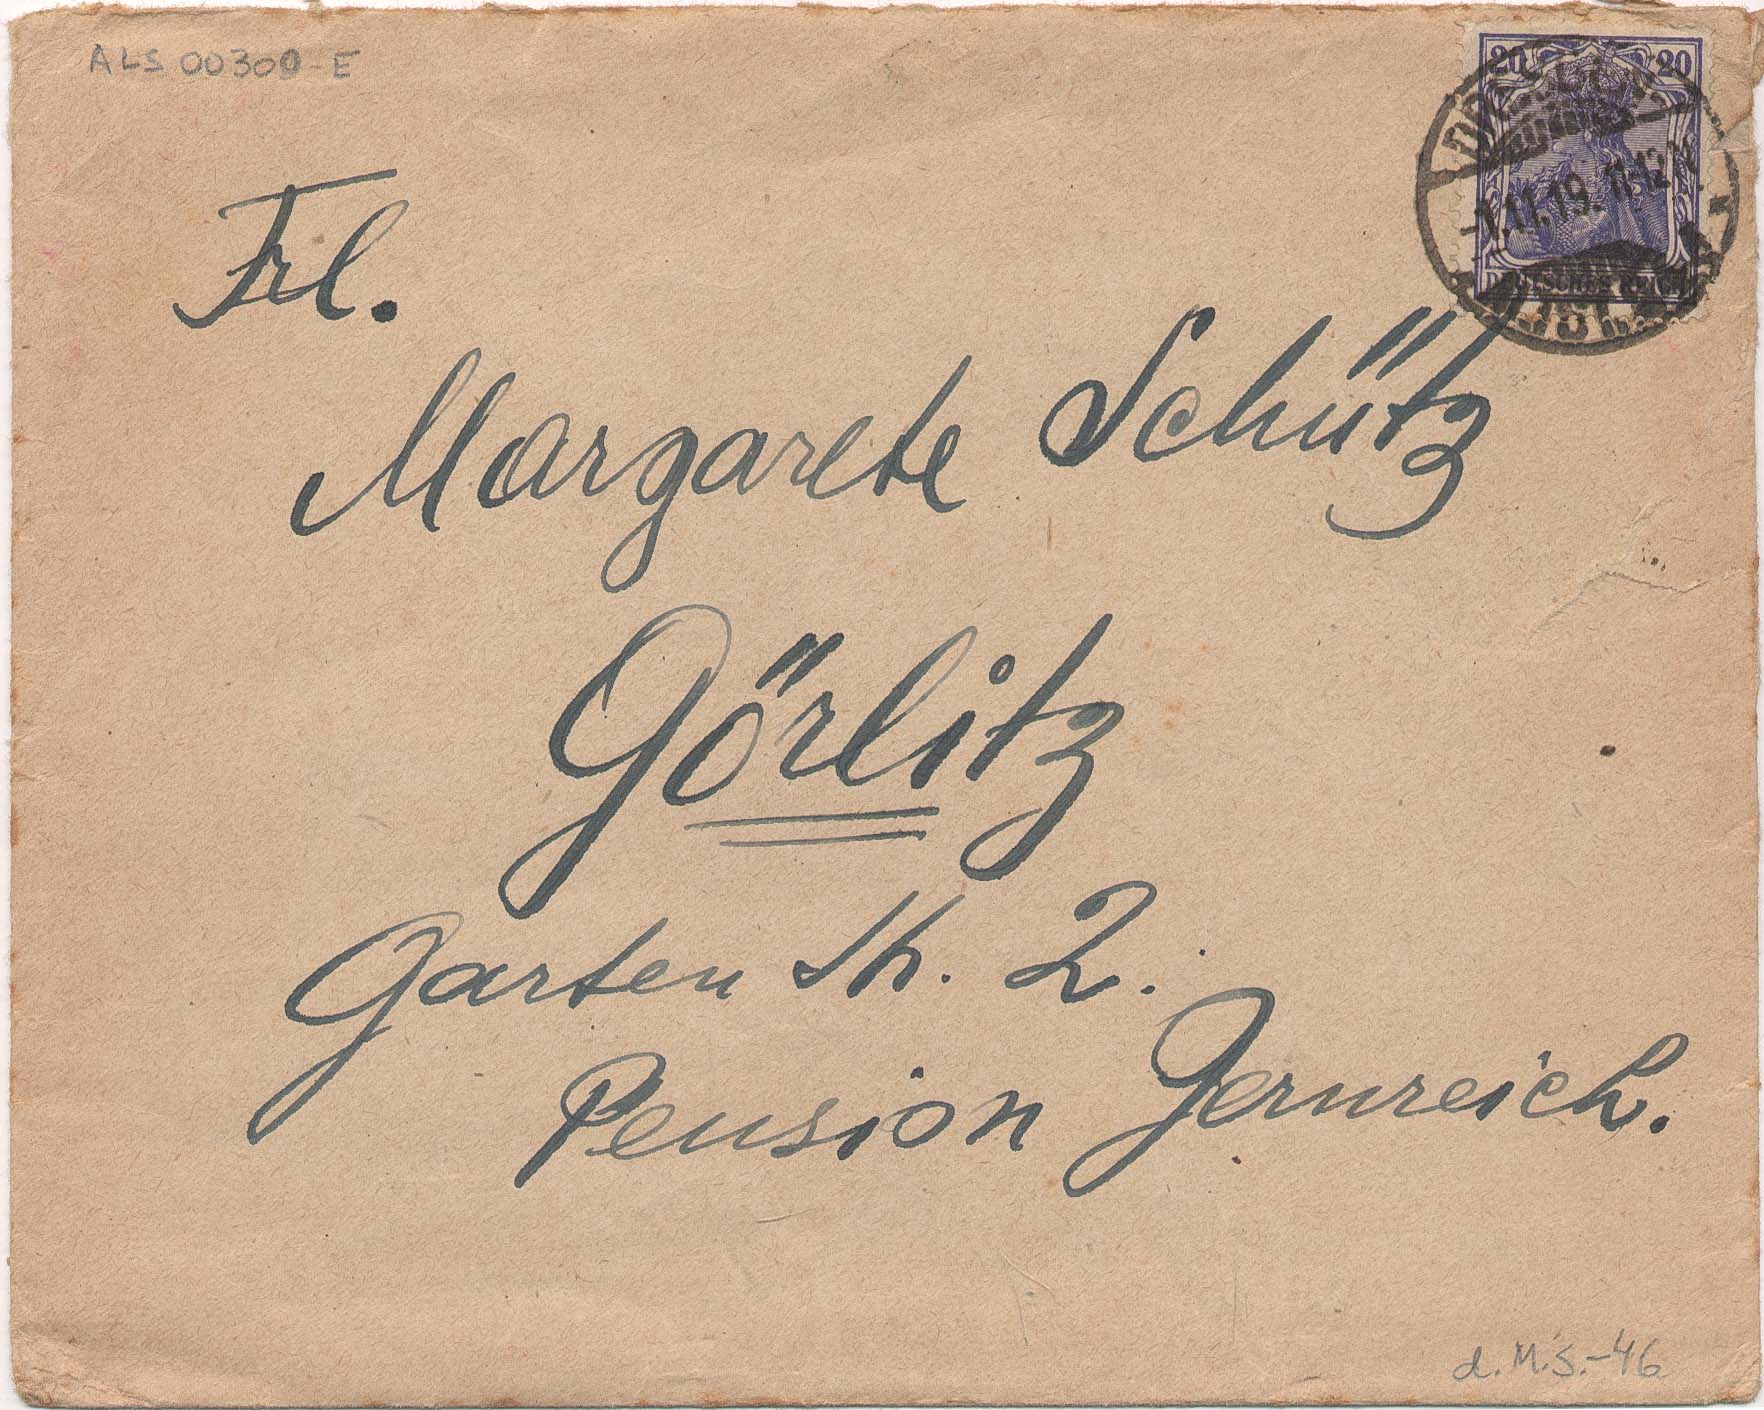 ALS 00300-E
20 20
DRESDEN
-1.11.19. 11-12 V.
DEUTSCHES REICH
Frl.
Margarete Schütz
Görlitz
Garten Str. 2.
Pension Gernreich.
d.M.S.-46